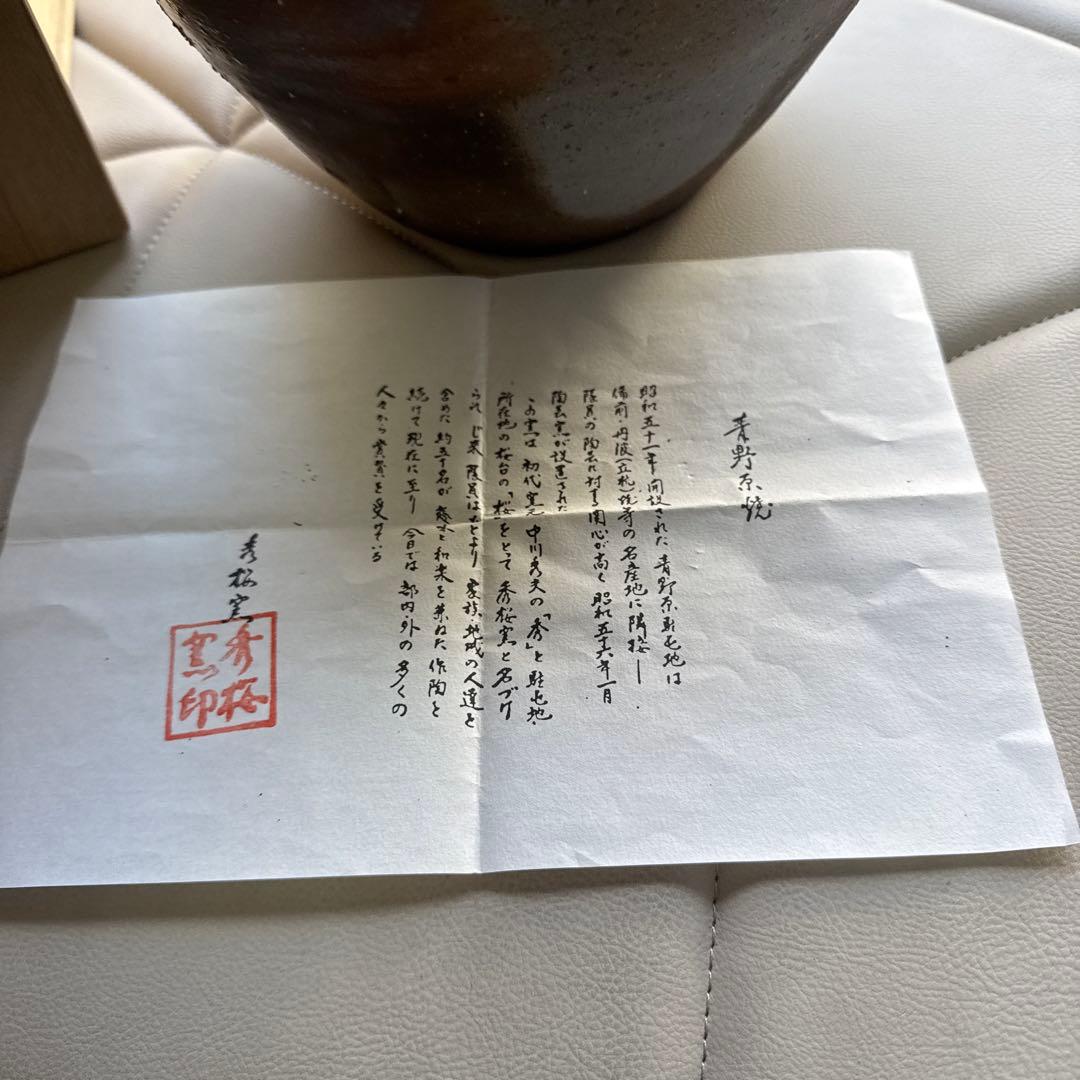 青野原焼
昭和五十一年開設された 青野原駐屯地は
備前・丹波(立杭)焼等の名産地に隣接し
隊員の陶芸に対する関心が高く 昭和五十六年一月
陶芸窯が設置された
この窯は 初代窯元 中川秀夫の「秀」と駐屯地・
所在地の桜台の「桜」をとって 秀桜窯と名づけ
られ 以来 隊員はもとより 家族・地域の人達を
含めた 約五十名が 和楽を兼ねた 作陶を
続けて 現在に至り 今日では 部内・外の多くの
人々から賞賛を受けている
秀桜窯
秀桜
窯印